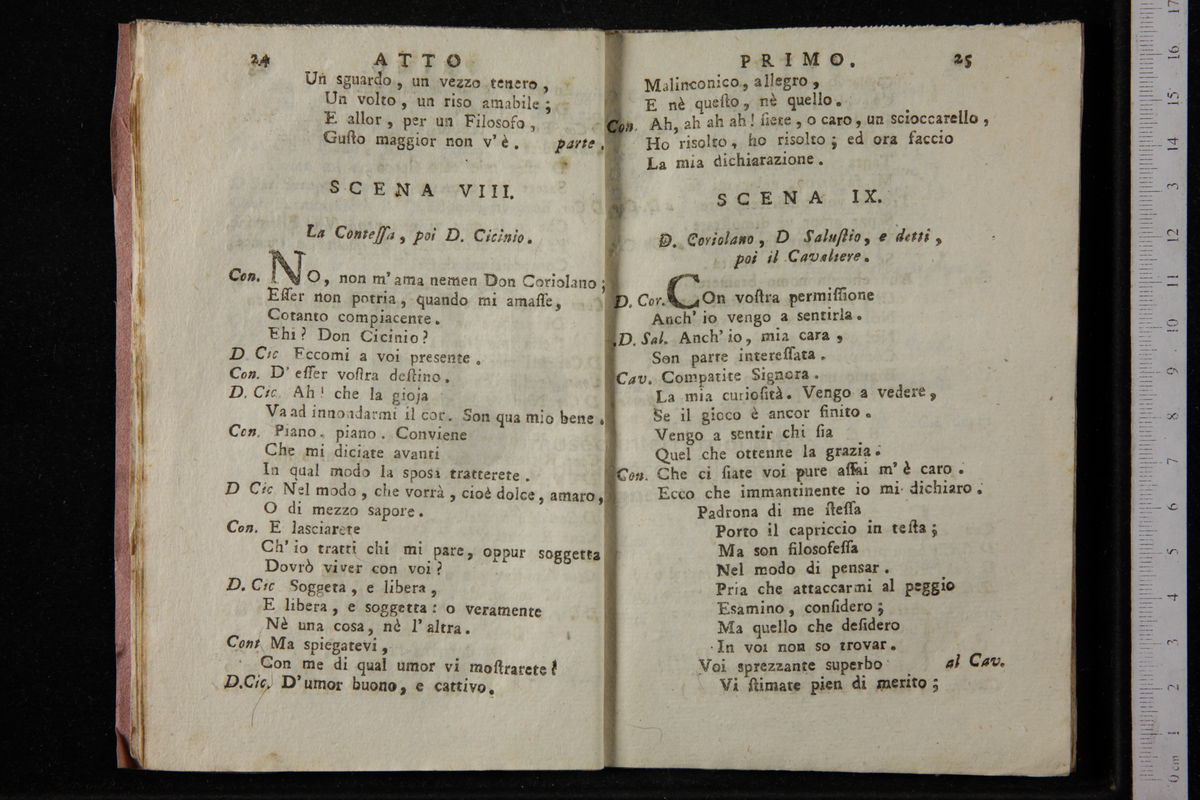 24 ATTO
Un sguardo, un vezzo tenero,
Un volto, un riso amabile;
E allor, per un Filosofo,
Guſto maggior non v'è. parte.
SCENA VIII.
La Conteſſa, poi D. Cicinio.
Con. NO, non m'ama nemen Don Coriolano;
Eſſer non potria, quando mi amaſſe,
Cotanto compiacente.
Ehi? Don Cicinio?
D Cic Eccomi a voi presente.
Con. D'eſſer voſtra deſtino.
D. Cic. Ah! che la gioja
Va ad innondarmi il cor. Son qua mio bene.
Con. Piano, piano. Conviene
Che mi diciate avanti
In qual modo la sposa tratterete.
D Cic Nel modo, che vorrà, cioè dolce, amaro,
O di mezzo sapore.
Con. E lasciarete
Ch'io tratti chi mi pare, oppur soggetta
Dovrò viver con voi?
D. Cic Soggeta, e libera,
E libera, e soggetta: o veramente
Nè una cosa, nè l'altra.
Cont Ma spiegatevi,
Con me di qual umor vi moſtrarete?
D. Cic. D'umor buono, e cattivo.
PRIMO. 25
Malinconico, allegro,
E nè queſto, nè quello.
Con. Ah, ah ah ah! ſiete, o caro, un scioccarello,
Ho risolto, ho risolto; ed ora faccio
La mia dichiarazione.
SCENA IX.
D. Coriolano, D Saluſtio, e detti,
poi il Cavaliere.
D. Cor. COn voſtra permiſſione
Anch'io vengo a sentirla.
D. Sal. Anch'io, mia cara,
Son parte intereſſata.
Cav. Compatite Signora.
La mia curioſità. Vengo a vedere,
Se il gioco è ancor finito.
Vengo a sentir chi ſia
Quel che ottenne la grazia.
Con. Che ci ſiate voi pure aſſai m'è caro.
Ecco che immantinente io mi dichiaro.
Padrona di me ſteſſa
Porto il capriccio in teſta;
Ma son filosofeſſa
Nel modo di pensar.
Pria che attaccarmi al peggio
Esamino, conſidero;
Ma quello che deſidero
In voi non so trovar.
Voi sprezzante superbo al Cav.
Vi ſtimate pien di merito;
0 cm 1 2 3 4 5 6 7 8 9 10 11 12 13 14 15 16 17